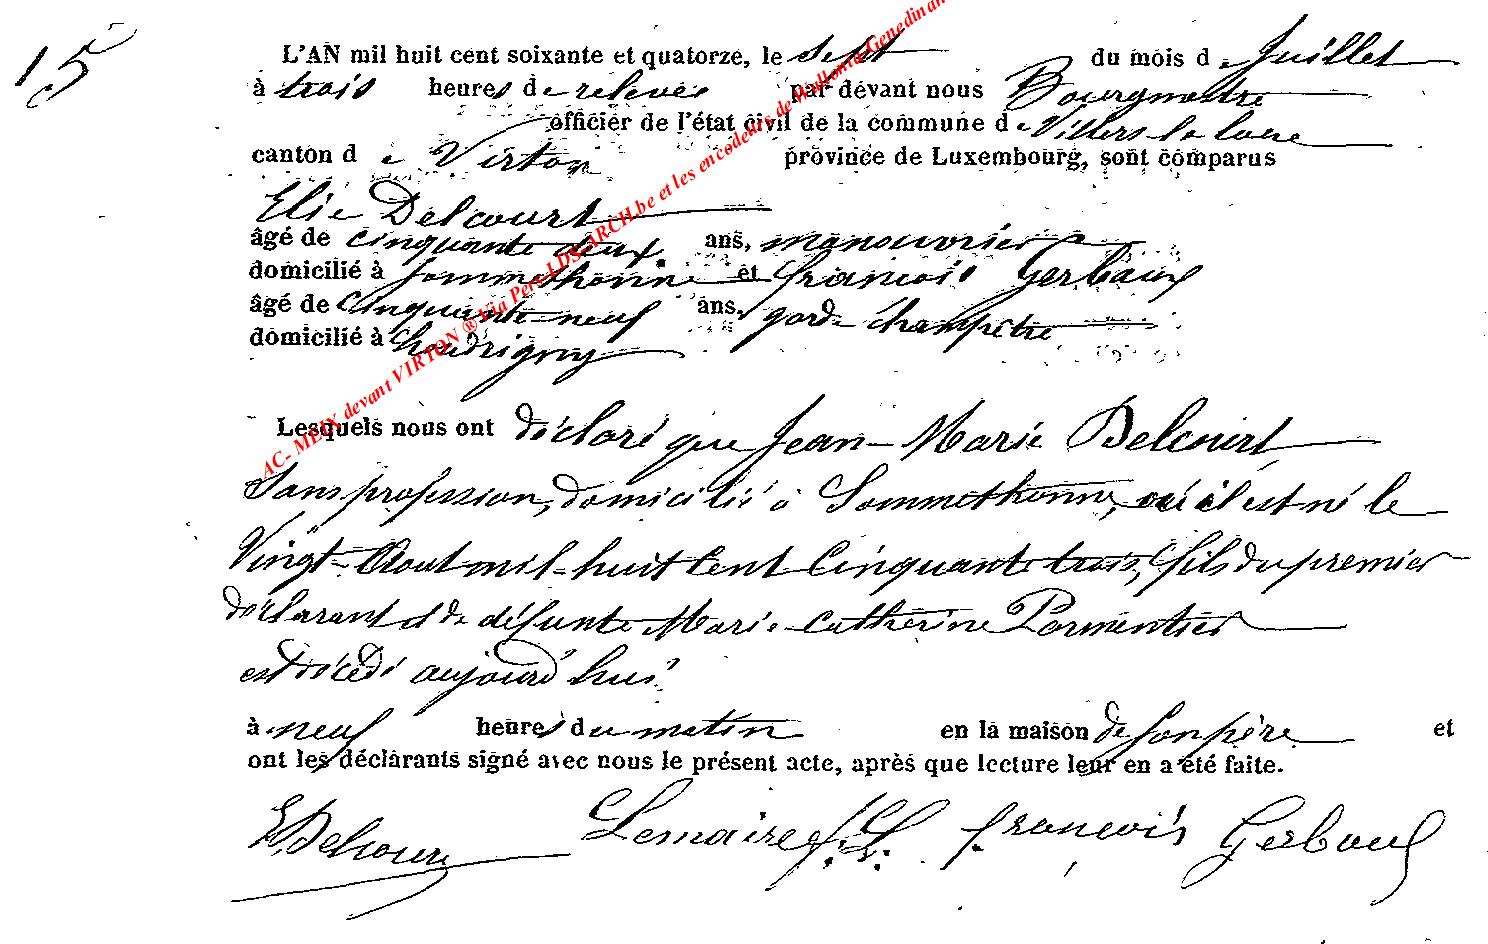 15
L'AN mil huit cent soixante et quatorze, le sept du mois de Juillet
à trois heures de relevée par devant nous Bourgmestre
officier de l'état civil de la commune de Villers la loue
canton de Virton province de Luxembourg, sont comparus
Elie Delcourt
âgé de cinquante deux ans, manouvrier
domicilié à Sommethonne et François Gerbaux
âgé de cinquante-neuf ans, garde champêtre
domicilié à houdrigny
Lesquels nous ont déclaré que Jean-Marie Delcourt
Sans profession, domicilié à Sommethonne, où il est né le
Vingt-Août mil-huit cent Cinquante trois, fils du premier
déclarant et de défunte Marie-Catherine Parmentier
est décédé aujourd'hui
à neuf heures du matin en la maison de son père et
ont les déclarants signé avec nous le présent acte, après que lecture leur en a été faite.
E Delcourt Lemaire François Gerbaux
AC- MEIX devant VIRTON ® Via Pers LDS-ARCH.be et les encodeurs de Wallonia Genedinan